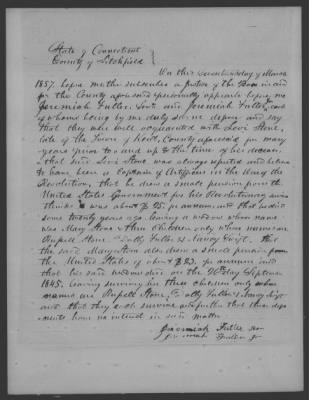 State of Connecticut
County of Litchfield
On this day of March
1857, before me the subscriber a Justice of the Peace in and
for the County aforesaid personally appeared before me
Jeremiah Fuller Senr and Jeremiah Fuller Jr each
of whom being by me duly sworn depose and say
that they were well acquainted with Levi Stone,
late of the Town of Kent, County aforesaid for many
years prior to and up to the time of his decease,
that said Levi Stone was always reputed and
to have been a Captain of Artificers in the War of the
Revolution, that he drew a small pension from the
United States Government for his Revolutionary services
thinks was about $ 95 pr annum, and that he died
some twenty years ago leaving a widow whose name
was Mary Stone & three Children only whose names are
Russell Stone, Sally Fuller & Nancy Swift. That
the said Mary Stone also drew a small pension from
the United States of about $ 23 pr annum and
that his said widow died on the day September
1845. leaving surviving her three children only whose
names are Russell Stone, Sally Fuller & Nancy Swift
and that they each survive and further that these
deponents have no interest in said matter
Jeremiah Fuller Senr
Jeremiah Fuller Jr